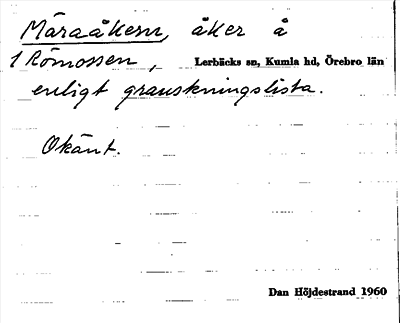 Måraåkern, åker å
1 Römossen, Lerbäcks sn, Kumla hd, Örebro län
enligt granskningslista.
Okänt.
Dan Höjdestrand 1960